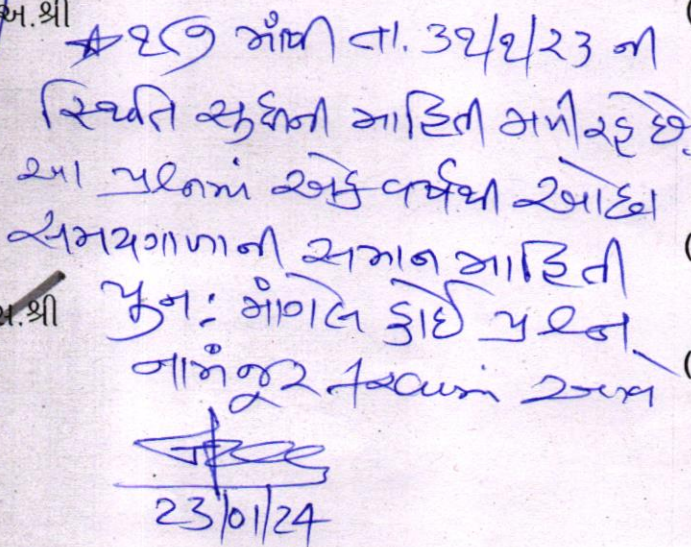 અ.શ્રી
★૨૭ માંથી તા. ૩૧/૧/૨૩ ની
સ્થિતિ સુધીની માહિતી મળી રહે છે,
આ પ્રશ્નમાં એક વર્ષથી ઓછા
સમયગાળાની સમાન માહિતી
સ.શ્રી
પુન: માંગેલ હોઈ પ્રશ્ન
નામંજૂર કરવામાં આવે
23/01/24